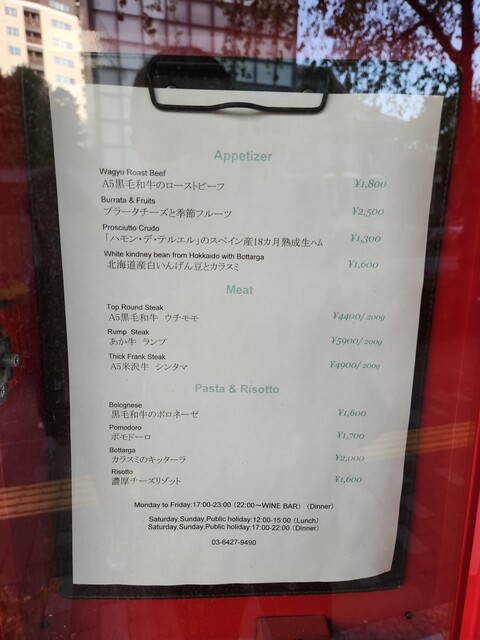 Appetizer
Wagyu Roast Beef
A5黒毛和牛のローストビーフ ¥1,800
Burrata & Fruits
ブラータチーズと季節フルーツ ¥2,500
Prosciutto Crudo
「ハモン・デ・テルエル」のスペイン産18カ月熟成生ハム ¥1,300
White kindney bean from Hokkaido with Bottarga
北海道産白いんげん豆とカラスミ ¥1,600
Meat
Top Round Steak
A5黒毛和牛 ウチモモ ¥4400/200g
Rump Steak
あか牛 ランプ ¥5900/200g
Thick Frank Steak
A5米沢牛 シンタマ ¥4900/200g
Pasta & Risotto
Bolognese
黒毛和牛のボロネーゼ ¥1,600
Pomodoro
ポモドーロ ¥1,700
Bottarga
カラスミのキッターラ ¥2,000
Risotto
濃厚チーズリゾット ¥1,600
Monday to Friday:17:00-23:00 (22:00〜WINE BAR) (Dinner)
Saturday,Sunday,Public holiday:12:00-15:00 (Lunch)
Saturday,Sunday,Public holiday:17:00-22:00 (Dinner)
03-6427-9490